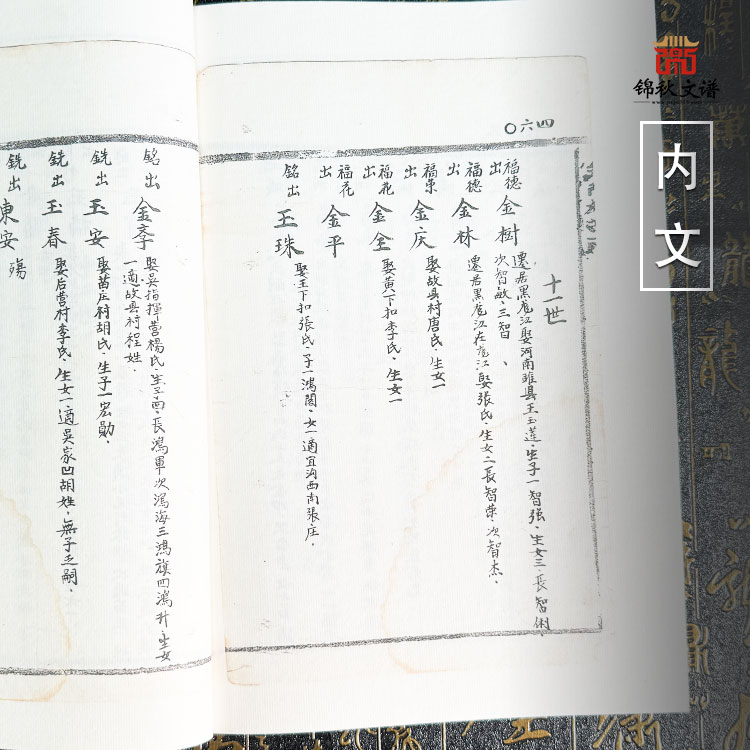 锦秋文谱
内文
四六〇
十一世
福德出 金樹 遷居黑龙江娶河南睢县王玉莲.生子一智强.生女三.長智俐
次智敏.三智
福德出 金林 遷居黑龙江在龙江娶張氏.生女二長智荣.次智杰.
福荣出 金庆 娶故县村唐氏.生女一
福花出 金全 娶黄下扣李氏.生女一
福花出 金平
銘出 玉珠 娶王下扣張氏.子一鴻閣.女一適宜沟西南張庄.
銘出 金亭 娶吴指揮营楊氏生子四.長鴻軍次鴻海三鴻旗四鴻升生女
一適故县村程姓.
銑出 玉安 娶苗庄村胡氏.生子一宏勛.
銑出 玉春 娶后营村李氏.生女一適吴家凹胡姓.無子乏嗣.
銑出 東安 殤